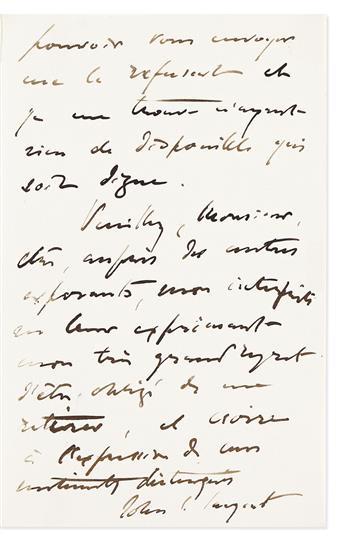 pouvoir vous envoyer
me le refusant et
je me trouve n'ayant
rien de disponible qui
soit digne.
Veuillez, Monsieur,
être, auprès des autres
exposants, mon interprète
en leur exprimant
mon très grand regret
d'être obligé de me
retirer, et croire
à l'expression de mes
sentiments distingués
John S. Sargent